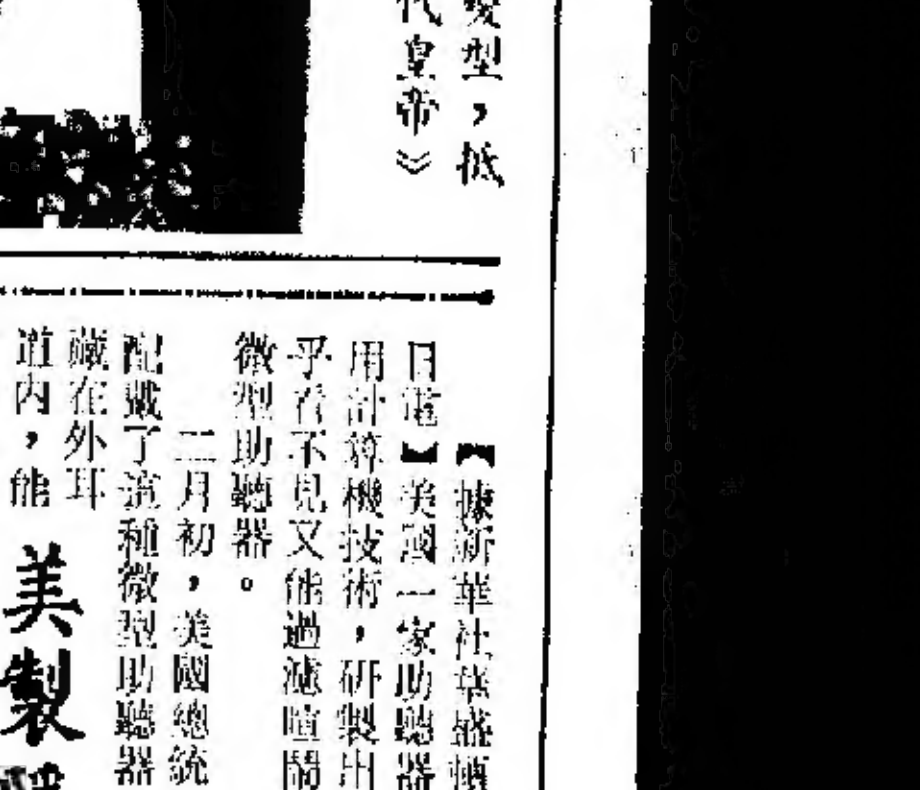 型，抵
代皇帝》
【據新華社華盛頓
日電】美國一家助聽器
用計算機技術，研製出
乎看不見又能過濾喧鬧
微型助聽器。
二月初，美國總統
配戴了這種微型助聽器
藏在外耳
道內，能
美製